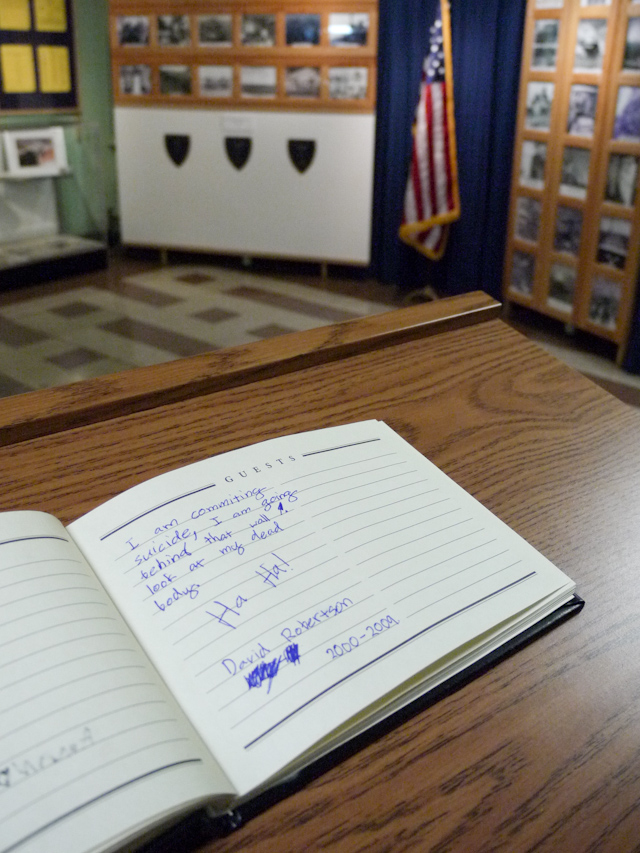 GUESTS
I am commiting
suicide, I am going
behind that wall
look at my dead
body.
Ha Ha!
David Robertson
2000-2009